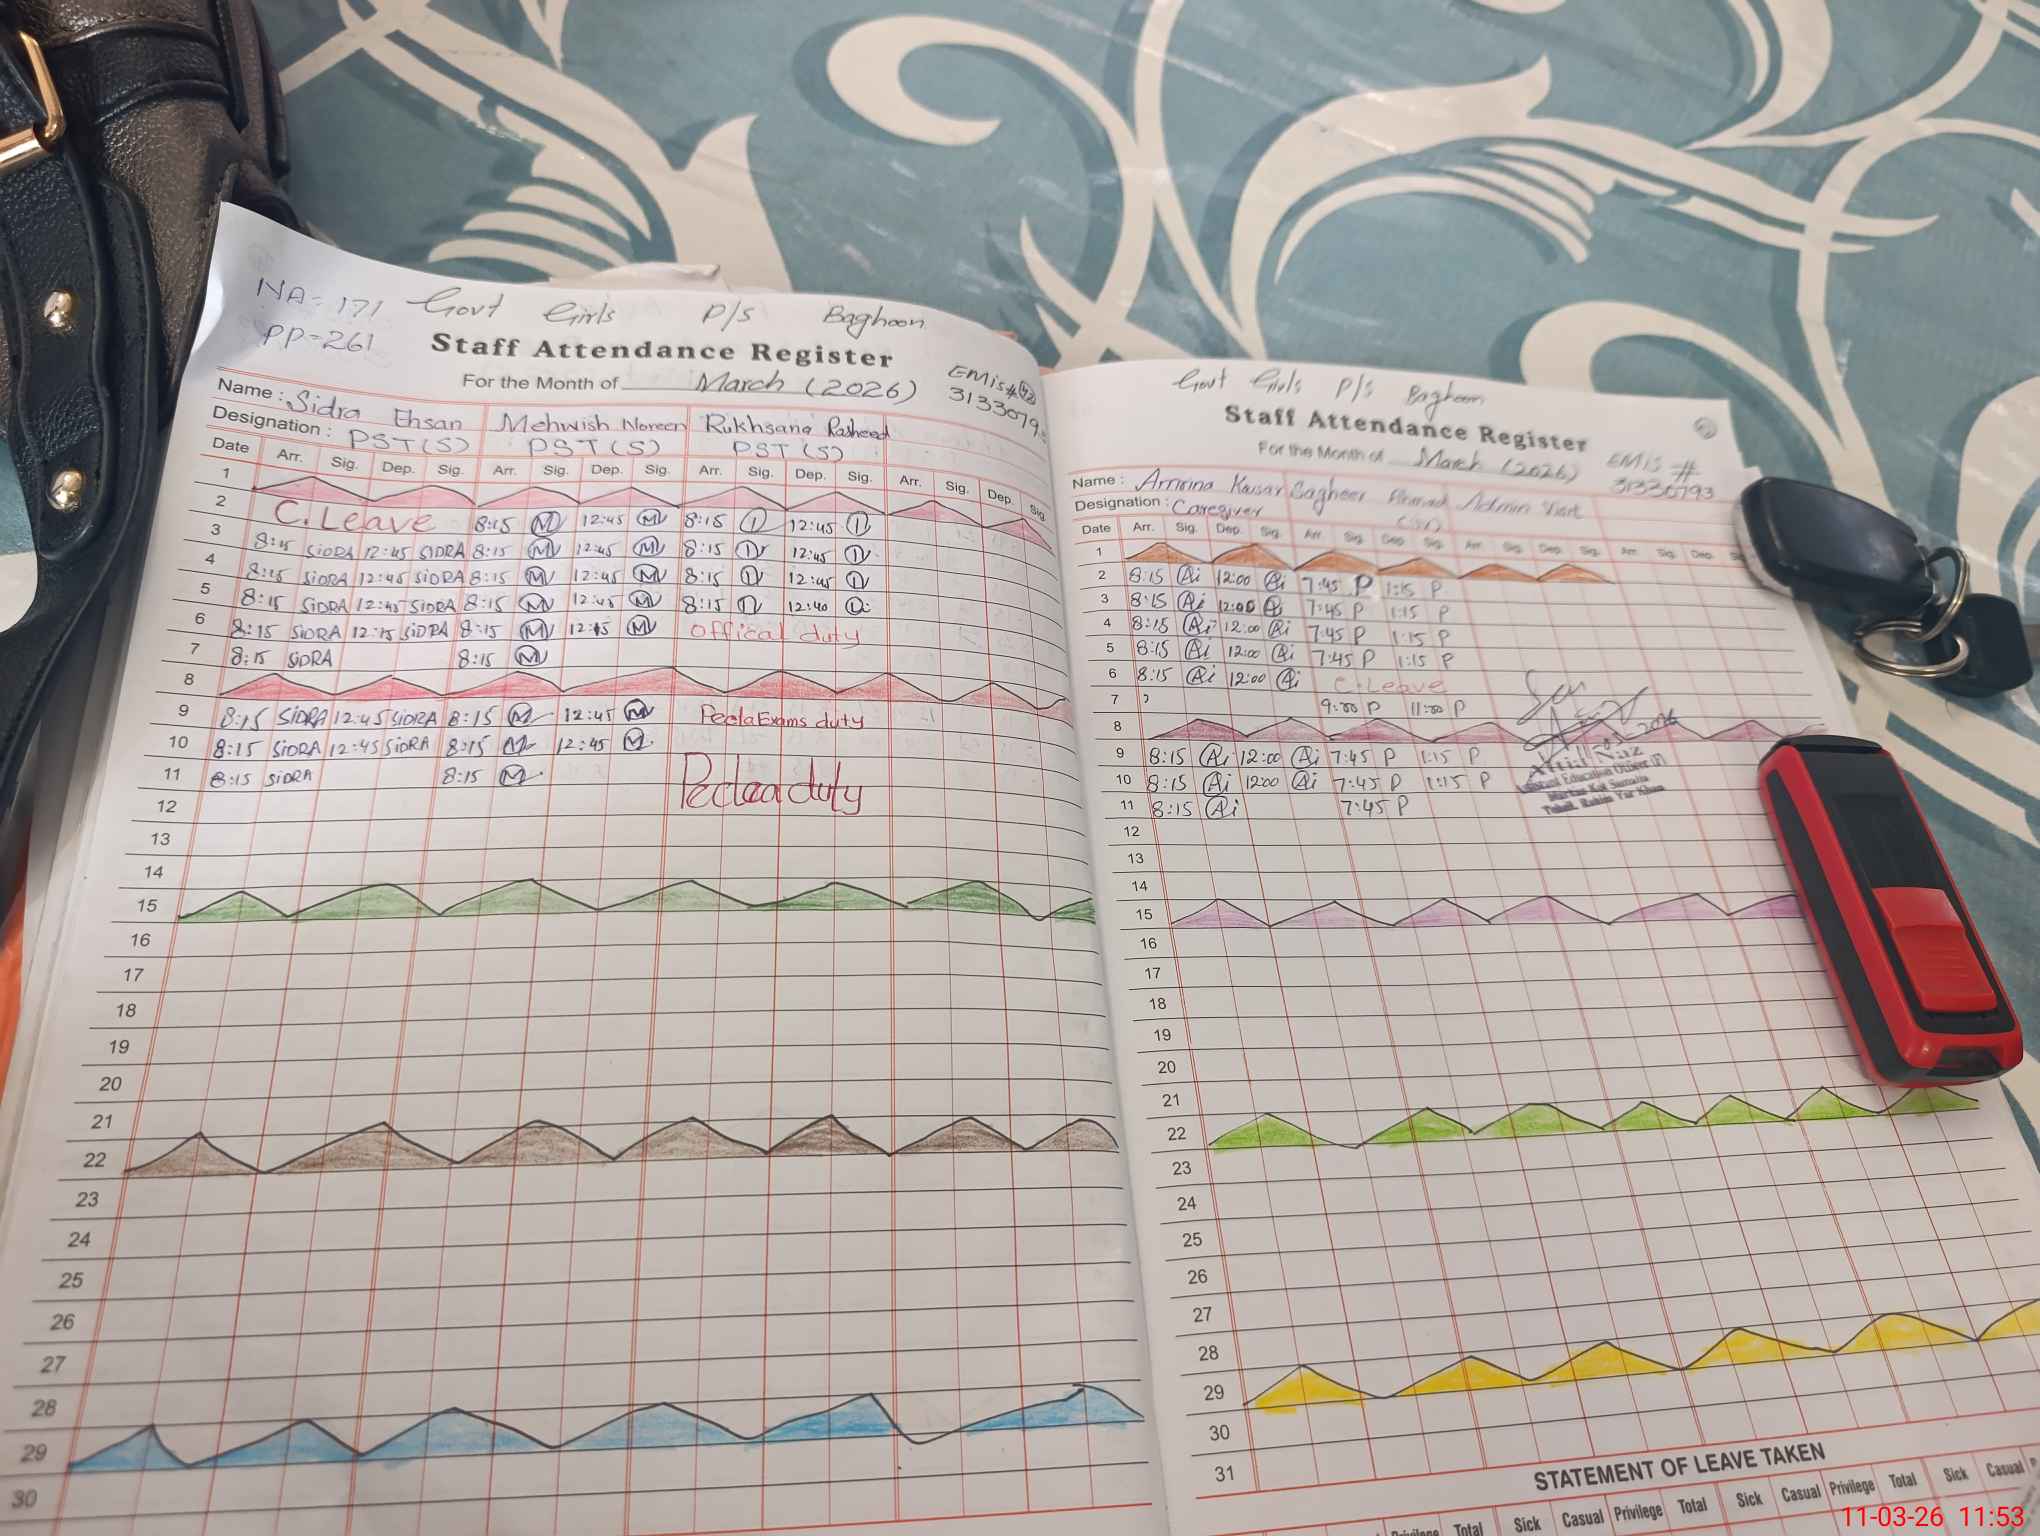 NA=171 Govt Girls P/S Baghoon
PP=261
Staff Attendance Register
For the Month of March (2026)
EMIS#
Name: Sidra Ehsan Mehwish Noreen Rukhsana Rasheed
Designation: PST(S) PST(S) PST(S)
Date Arr. Sig. Dep. Sig. Arr. Sig. Dep. Sig. Arr. Sig. Dep. Sig. Arr. Sig. Dep. Sig.
1
2 C.Leave 8:15 M 12:45 M 8:15 12:45
3 8:15 SIDRA 12:45 SIDRA 8:15 M 12:45 M 8:15 12:45
4 8:15 SIDRA 12:45 SIDRA 8:15 M 12:45 M 8:15 12:45
5 8:15 SIDRA 12:45 SIDRA 8:15 M 12:45 M 8:15 12:40
6 8:15 SIDRA 12:15 SIDRA 8:15 M 12:15 M offical duty
7 8:15 SIDRA 8:15 M
8
9 8:15 SIDRA 12:45 SIDRA 8:15 M 12:45 M Pecta Exams duty
10 8:15 SIDRA 12:45 SIDRA 8:15 M 12:45 M
11 8:15 SIDRA 8:15 M duty
12
13
14
15
16
17
18
19
20
21
22
23
24
25
26
27
28
29
30
Govt Girls P/S Baghoon
Staff Attendance Register
For the Month of March (2026) EMIS #
31330793
Name: Amrina Kausar Sagheer Ahmad Admin
Designation: Caregiver
Date Arr. Sig. Dep. Sig. Arr. Sig. Dep. Sig. Arr. Sig. Dep. Sig. Arr. Sig. Dep.
1
2 8:15 Ai 12:00 Ai 7:45 P 1:15 P
3 8:15 Ai 12:00 Ai 7:45 P 1:15 P
4 8:15 Ai 12:00 Ai 7:45 P 1:15 P
5 8:15 Ai 12:00 Ai 7:45 P 1:15 P
6 8:15 Ai 12:00 Ai C.Leave
7 9:00 P 11:00 P
8
9 8:15 Ai 12:00 Ai 7:45 P 1:15 P
10 8:15 Ai 12:00 Ai 7:45 P 1:15 P
11 8:15 Ai 7:45 P
Education Officer (F)
Rahim Yar Khan
12
13
14
15
16
17
18
19
20
21
22
23
24
25
26
27
28
29
30
31
STATEMENT OF LEAVE TAKEN
Privilege Total Sick Casual Privilege Total Sick Casual Privilege Total Sick Casual
11-03-26 11:53